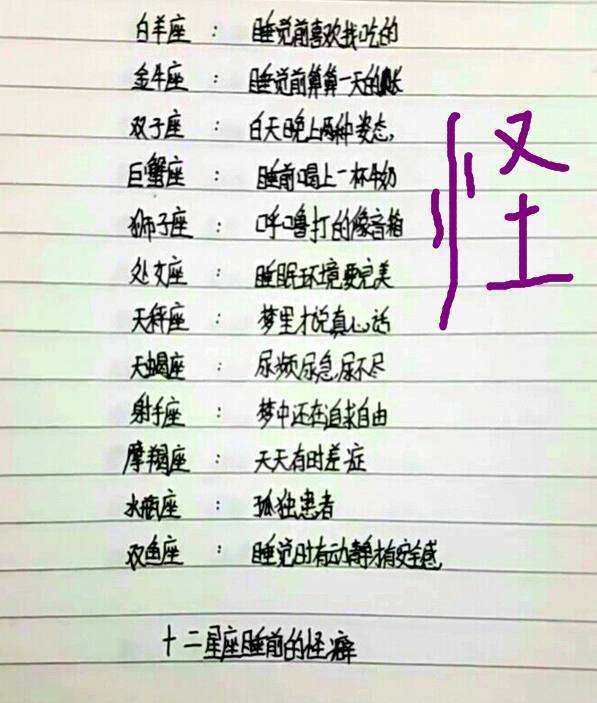 白羊座：睡觉前喜欢找吃的
金牛座：睡觉前算算一天的账
双子座：白天晚上两种姿态,
巨蟹座：睡前喝上一杯牛奶
狮子座：呼噜打的像音箱
处女座：睡眠环境要完美
天秤座：梦里才说真心话
天蝎座：尿频尿急尿不尽
射手座：梦中还在追求自由
摩羯座：天天有时差症
水瓶座：孤独患者
双鱼座：睡觉时有动静才有安全感
十二星座睡前的怪癖
怪